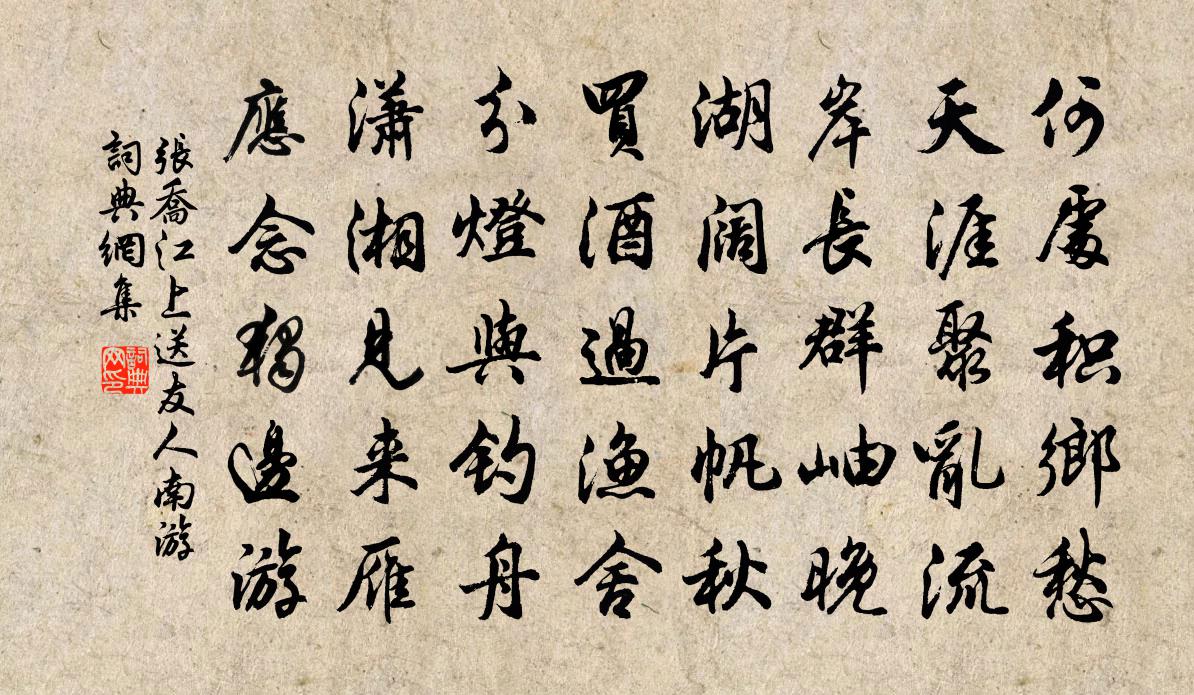 何處积鄉愁
天涯聚亂流
岸長群岫晚
湖阔片帆秋
買酒過漁舍
分燈與釣舟
瀟湘見来雁
應念獨邊游
張喬江上送友人南游
詞典網集
詞典網印